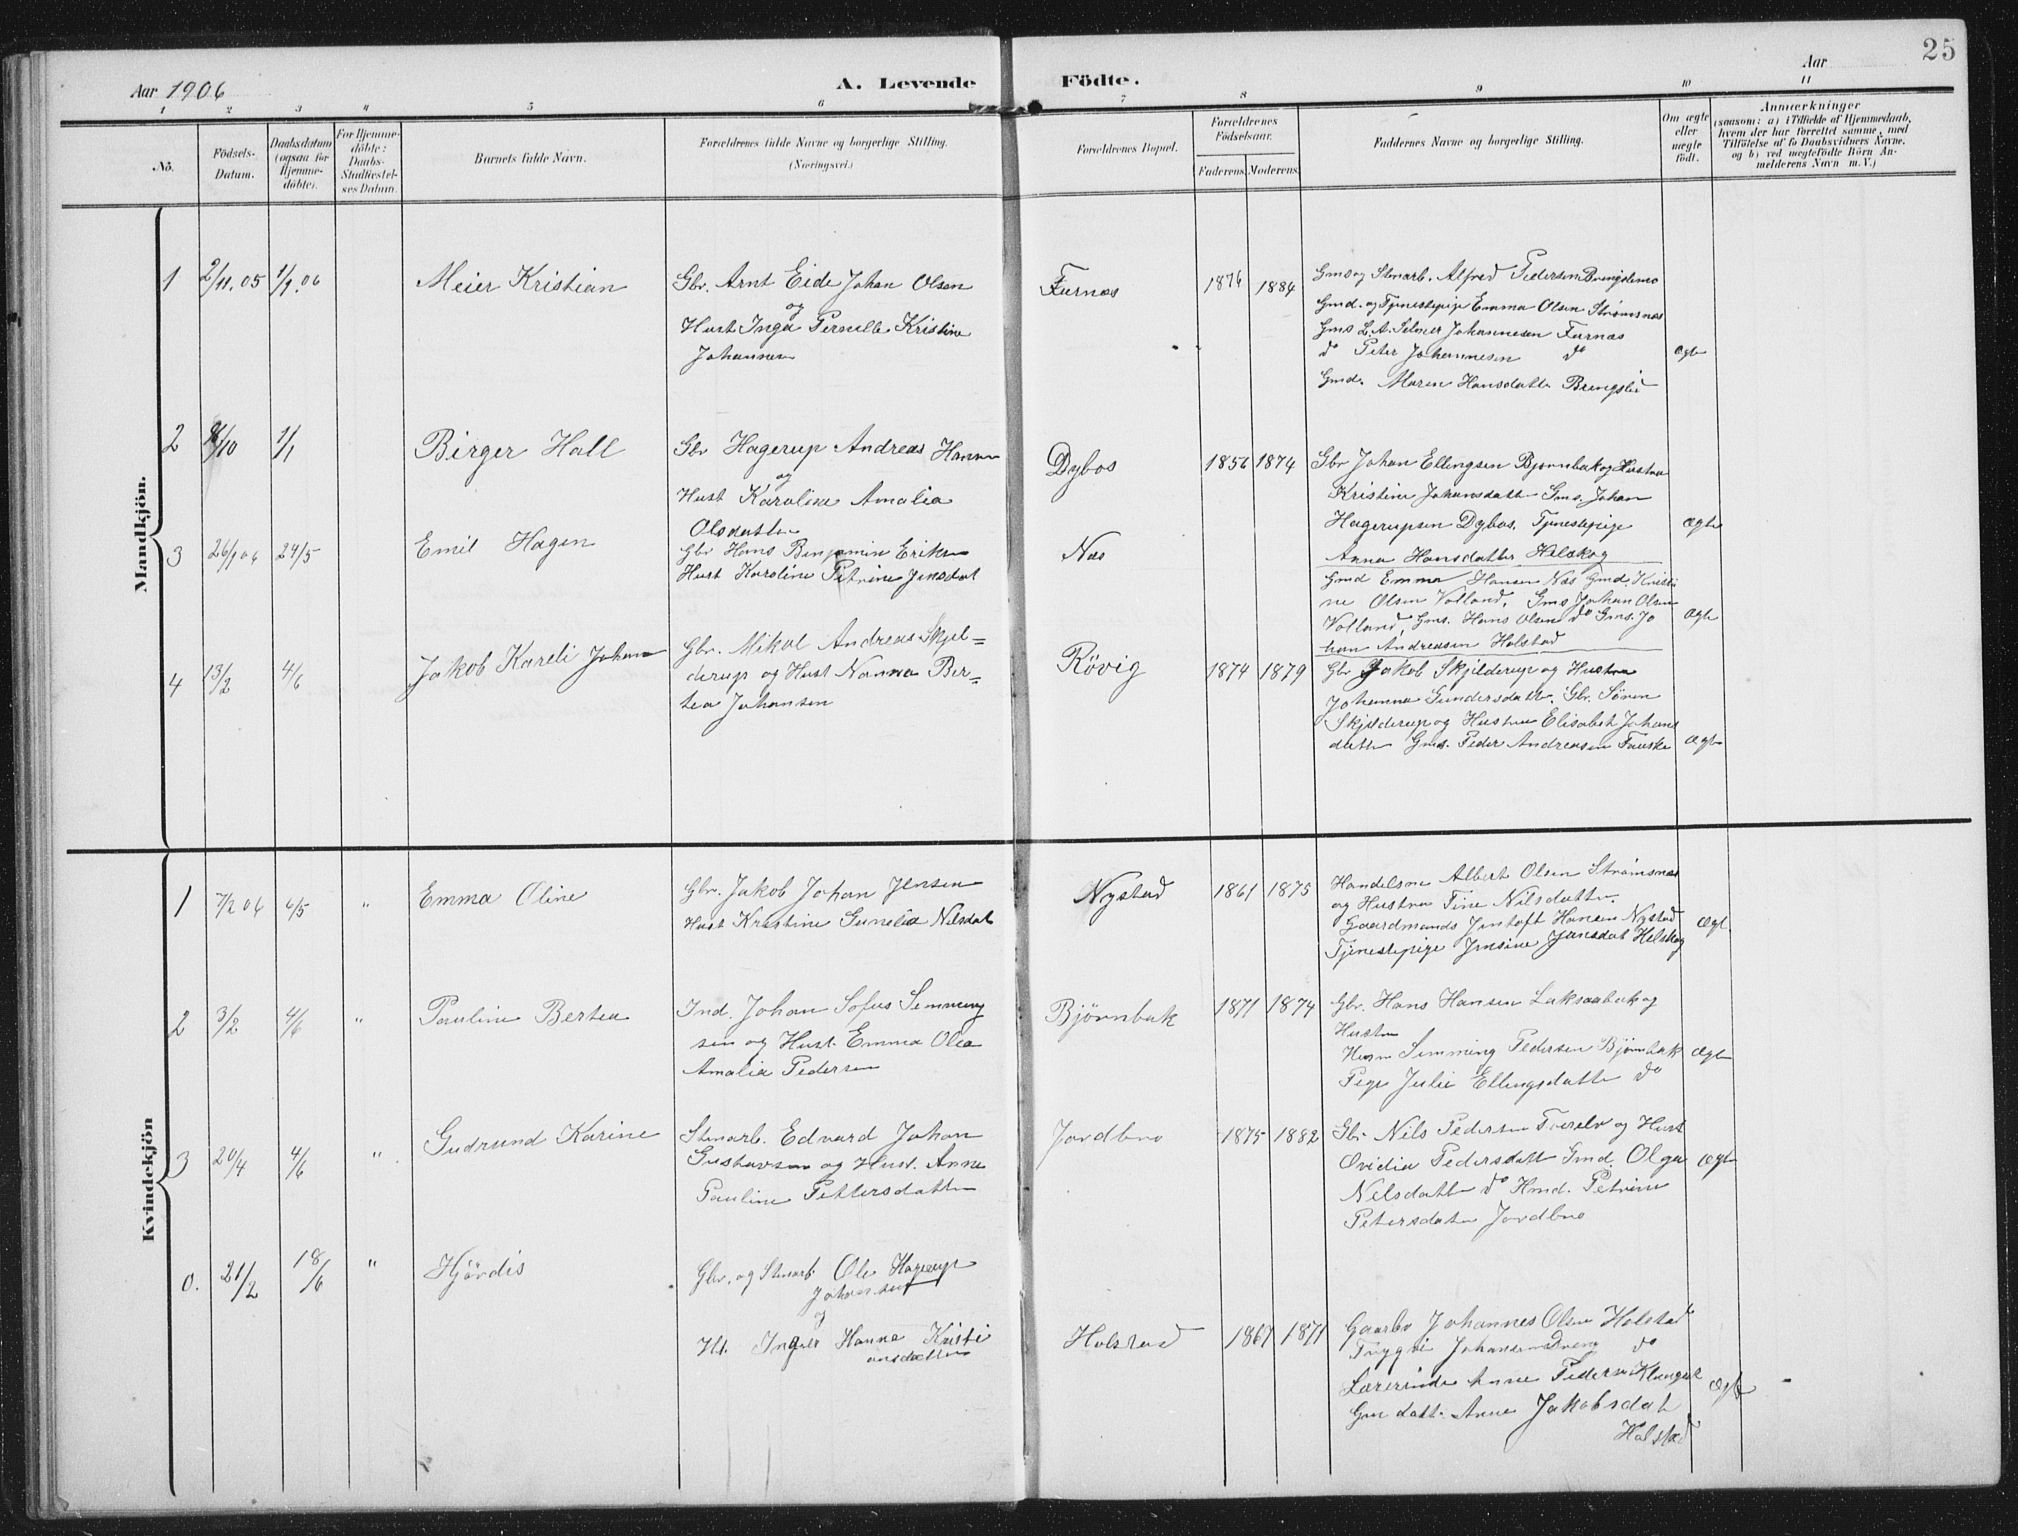 25
Aar 1906
A. Levende
Födte.
Aar
1 2 3 4 5 6 7 8 9 10 11
No.
Födsels-
Datum.
Daabsdatum
(ogsaa for
Hjemme-
döbte).
For Hjemme-
döbte:
Daabs-
Stadfæstel-
ses Datum.
Barnets fulde Navn.
Forældrenes fulde Navne og borgerlige Stilling.
(Næringsvei.)
Forældrenes Bopæl.
Forældrenes
Födselsaar.
Faderens. Moderens.
Faddernes Navne og borgerlige Stilling.
Om ægte
eller
uægte
födt.
Anmærkninger
(saasom: a) i Tilfælde af Hjemmedaab,
hvem der har forrettet samme, med
Tilföielse af to Daabsvidners Navne,
og b) ved uægtefödte Börn An-
melderens Navn m. V.)
Mandkjön.
1 2/11.05 1/1.06 Meier Kristian
Gbr. Arnt Eide Johan Olsen
og
Hust Inga Pernille Kristine
Johannesen
Furnes 1876 1884
Gms og Stenarb. Alfred Pedersen Brengslemo
Gmd. og Tjenestepige Emma Olsen Strømsnes
Gms L. A. Selmer Johannesen Furnes
do Peter Johannesen do
Gmd. Maren Hansdatter Brengslid
Ægte
2 /10 1/1 Birger Hall
Gbr Hagerup Andreas Hansen
og
Hust Karoline Amalia
Olsdatter
Dybos 1856 1874
Gbr Johan Ellingsen Bjørnbak og Hustru
Kristine Johansdatter Gms. Johan
Hagerupsen Dybos. Tjenestepige
Anna Hansdatter Helskog
Ægte
3 26/1 06 24/5 Emil Hagen
Gbr Hans Benjamin Eriksen
Hust Karoline Petrine Jensdat
Nes
Gmd Emma Hansen Nes Gmd. Kristi
ne Olsen Volland, Gms Johan Olsen
Volland, Gms. Hans Olsen do Gms. Jo
han Andreasen Holstad
Ægte
4 13/2 4/6 Jakob Kareli Johan
Gbr. Mikal Andreas Skjel=
derup og Hust Nanna Ber=
tea Johansen
Røvig 1874 1879
Gbr Jakob Skjelderup og Hustru
Johanna Gundersdatter. Gbr. Søren
Skjelderup og Hustru Elisabet Johans
datter Gms. Peder Andreasen Fauske
Ægte
Kvindekjön
1 7/2 06 6/5 " Emma Oline
Gbr. Jakob Johan Jensen
Hust Kristine Gunelia Nilsdat
Nystad 1861 1875
Handelsm Albert Olsen Strømsnes
og Hustru Tine Nilsdatter.
Gaardmands Jentoft Hansen Nystad
Tjenestepige Jensine Jensdat Helskog
Ægt
2 3/2 4/6 " Pauline Bertea
Ind. Johan Sofus Semming
sen og Hust. Emma Olea
Amalia Pedersen
Bjørnbak 1871 1874
Gbr. Hans Hansen Laksaabak og
Hustru
Husm Semming Pedersen Bjørnbak
Pige Julie Ellingsdatter do
Ægte
3 20/4 4/6 " Gudrund Karine
Stenarb. Edvard Johan
Gustavsen og Hust. Anne
Pauline Pettersdatter
Jordbro 1875 1882
Gbr Nils Pedersen Tverelv og Hust
Ovidia Pedersdatt Gmd. Olga
Nelsdatter do Hmd. Petrine
Petersdater Jordbro
Ægte
0. 21/2 18/6 " Hjørdis
Gbr. og Stenarb. Ole Hagerup
Johansen
og
Ht. Inger Hanna Kristi
ansdatter
Holstad 1867 1871
Gaarbr Johannes Olsen Holstad
Tryggve Johansen Dreng do
Lærerinde Anne Pedersen Klunget
Gm datt. Anne Jakobsdat
Holstad
Ægte